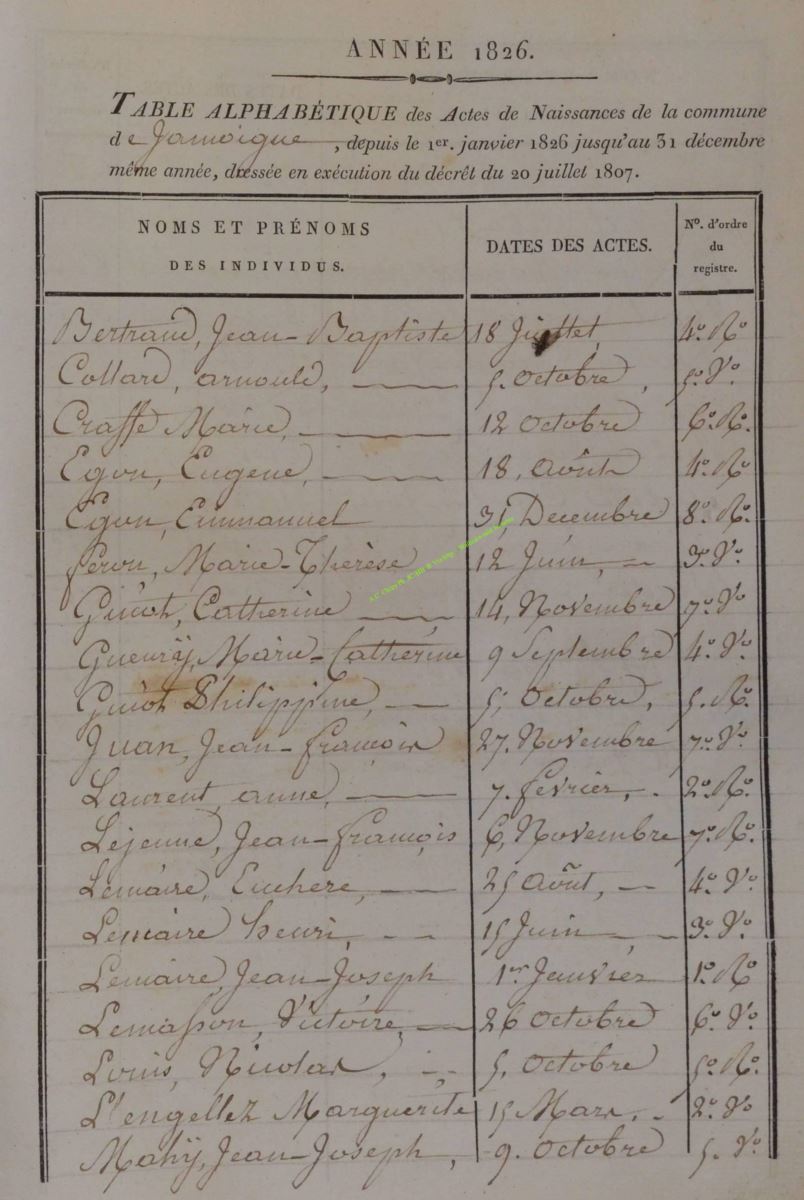 ANNÉE 1826.
TABLE ALPHABÉTIQUE des Actes de Naissances de la commune
de Jamoigne, depuis le 1er. janvier 1826 jusqu'au 31 décembre
même année, dressée en exécution du décrêt du 20 juillet 1807.
NOMS ET PRÉNOMS DES INDIVIDUS. DATES DES ACTES. No. d'ordre du registre.
Bertrand, Jean-Baptiste 18 Juillet, 4º Rº
Collard, arnould, 5. Octobre, 5º Vº.
Craffe Marie, 12 Octobre 6º Rº.
Egon, Eugene, 18, Août 4º Rº.
Egon, Emmanuel 31, Decembre 8º Rº.
feron, Marie-Thérèse 12 Juin, 3º Vº
Guiot, Catherine 14, Novembre 7º Vº
Gueury, Marie-Catherine 9 Septembre 4º Vº.
Guiot Philippine, 5, Octobre, 5. Rº.
Juan, Jean-françois 27. Novembre 7º Vº.
Laurent, anne, 7. fevrier, 2º Rº.
Lejeune, Jean-françois 6, Novembre 7º Rº.
Lemaire, Euchere, 25 Août, 4º Vº.
Lemaire henri, 15 Juin 3º Vº.
Lemaire, Jean-Joseph 1er Janvier 1º Rº
Lemasson, Victoire, 26 Octobre 6º Vº.
Louis, Nicolas, 5, Octobre 5º Rº.
L'engellez Marguerite 15 Mars, 2º Vº
Mahy, Jean-Joseph, 9. Octobre 5. Vº